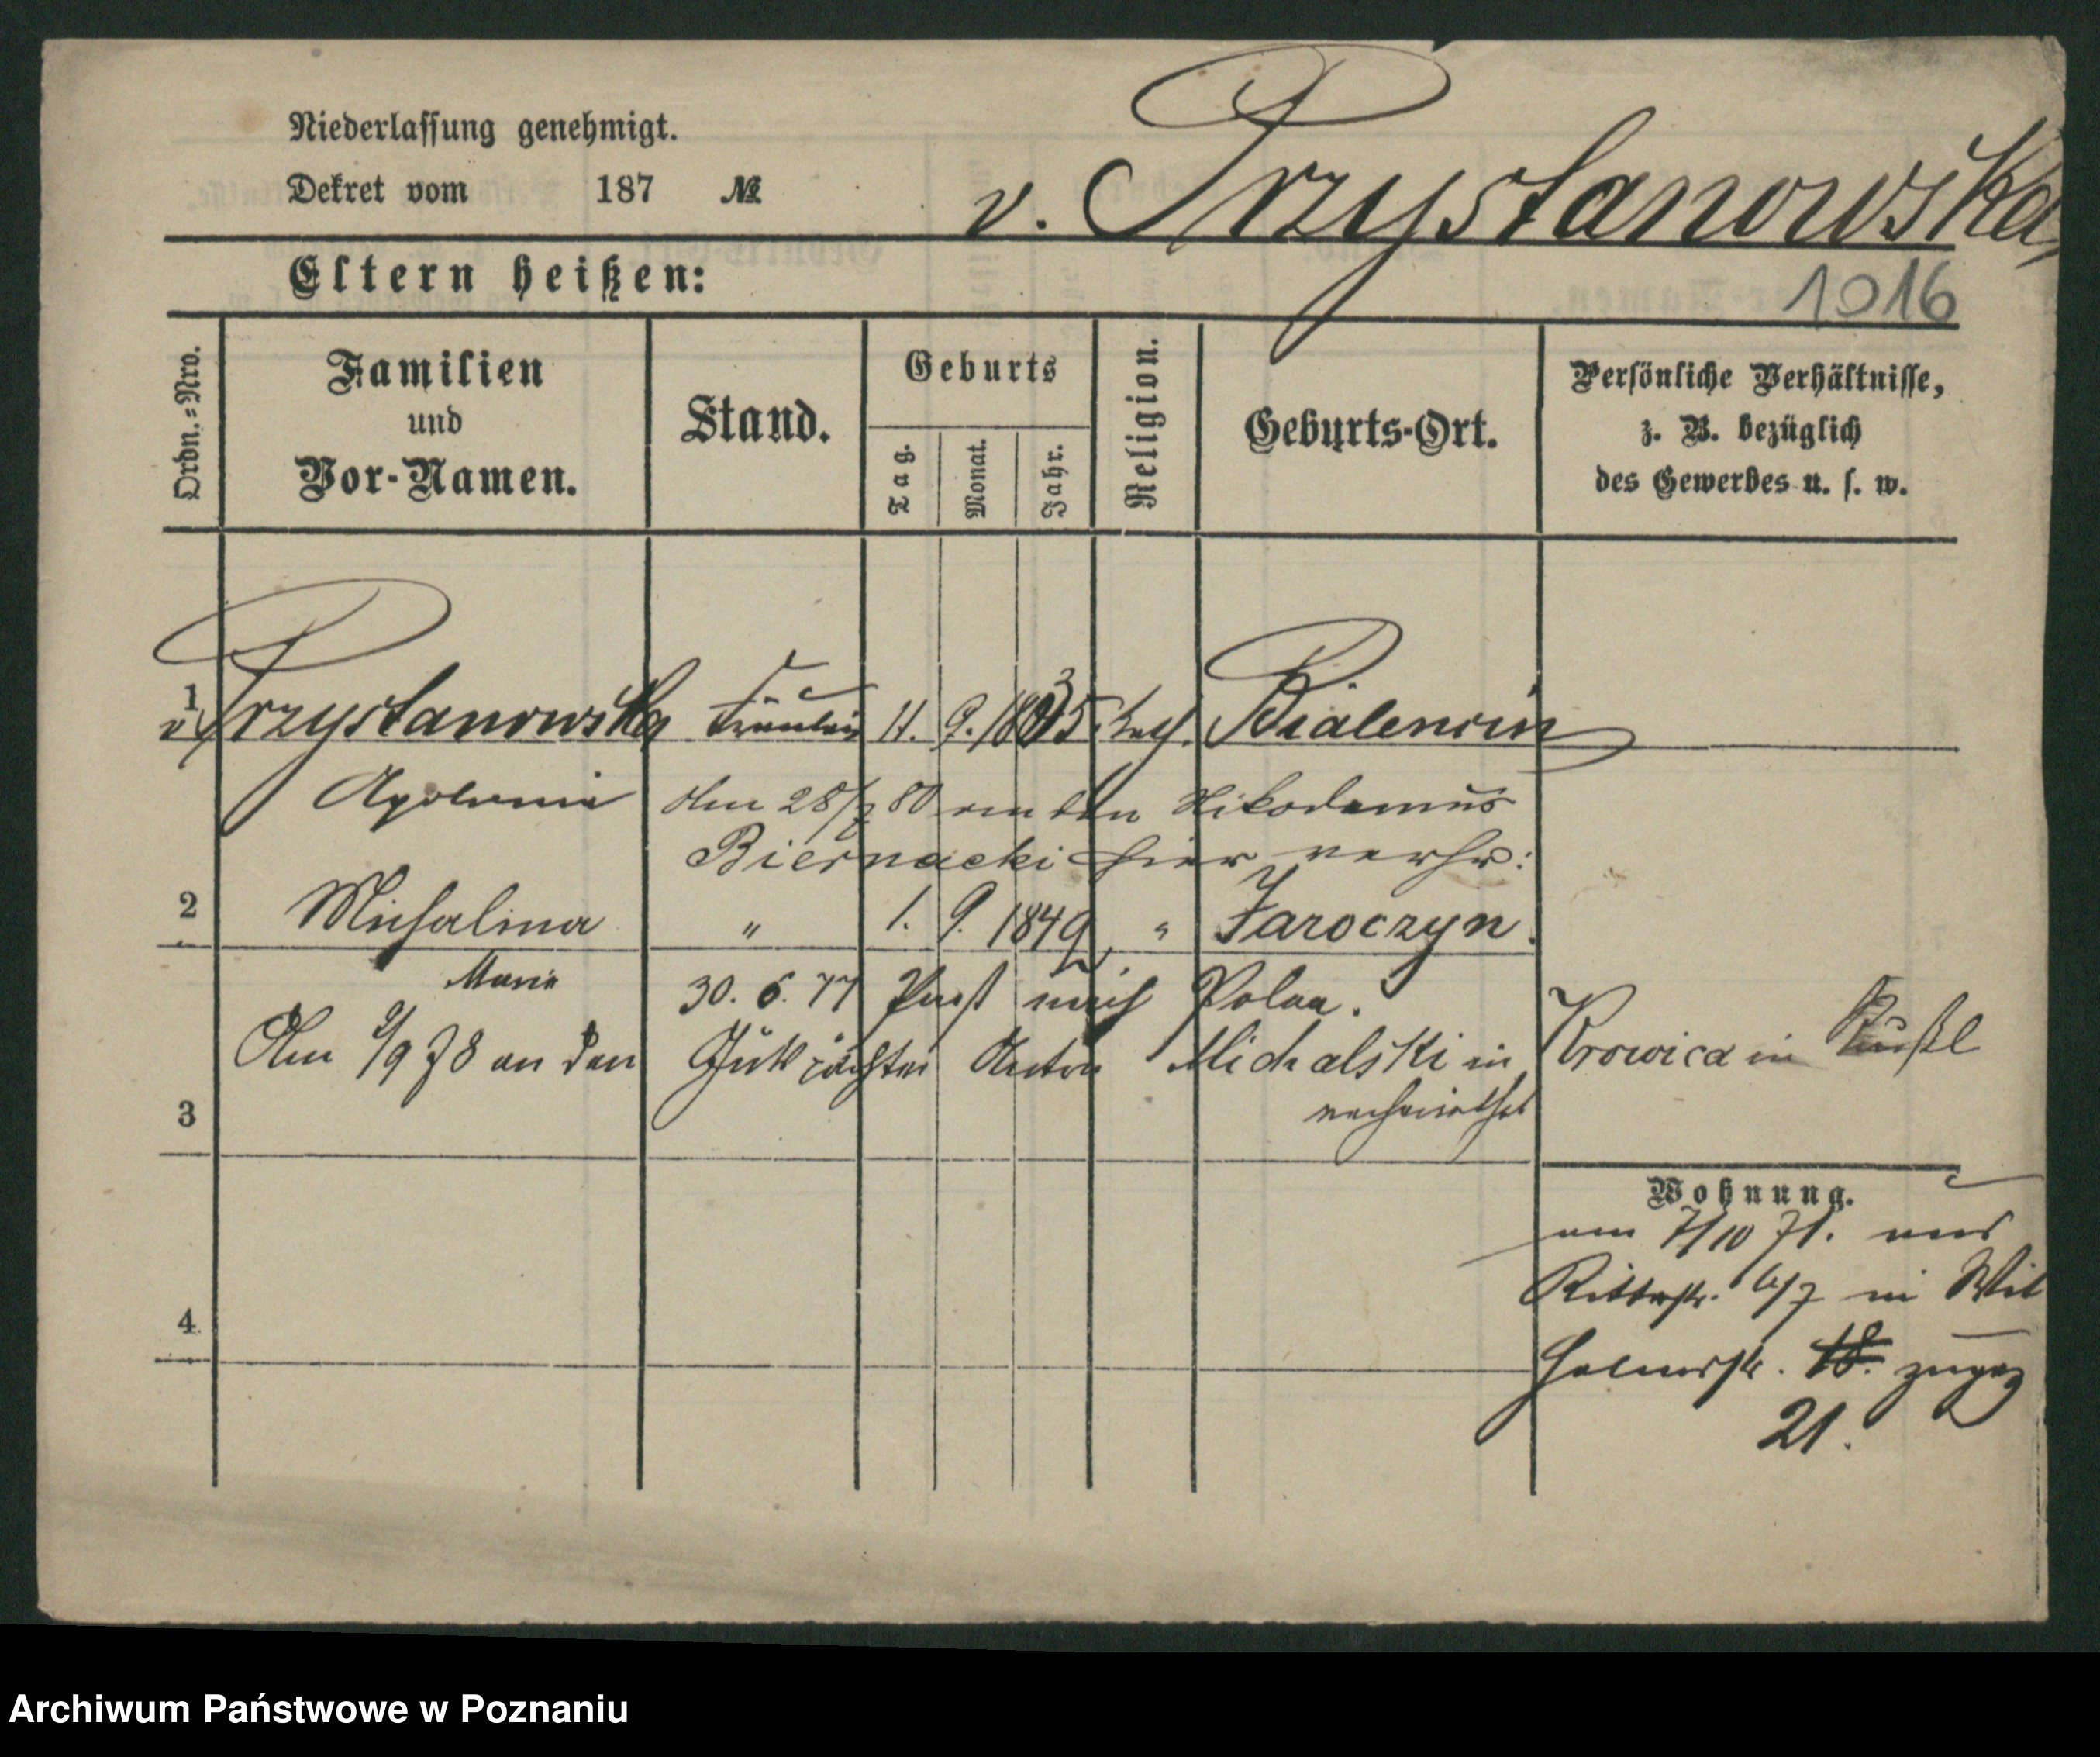 Niederlassung genehmigt.
Dekret vom 187 №
v. Przystanowska
Eltern heißen:
1016
Ordn.=Nro.
Familien
und
Vor-Namen.
Stand.
Geburts
Tag.
Monat.
Jahr.
Religion.
Geburts-Ort.
Persönliche Verhältnisse,
z. B. bezüglich
des Gewerbes u. s. w.
1 v. Przystanowska Fräulein 11. 9. 1835. kath.
Apolonia Am 28/7 80 an den Nikodemus
Biernacki hier verhr:
2 Michalina " 1. 9. 1849 " Jaroczyn.
Marie 30. 6. 77 Paß nach Polen.
Am 2/9 78 an den Gutspächter Anton Michalski in Krowica in Rußl
verheirathet
3
Wohnung.
am 7/10 71. von
Ritterstr. 6/7 in Wil
helmstr. 18. zugez
21.
4
Archiwum Państwowe w Poznaniu